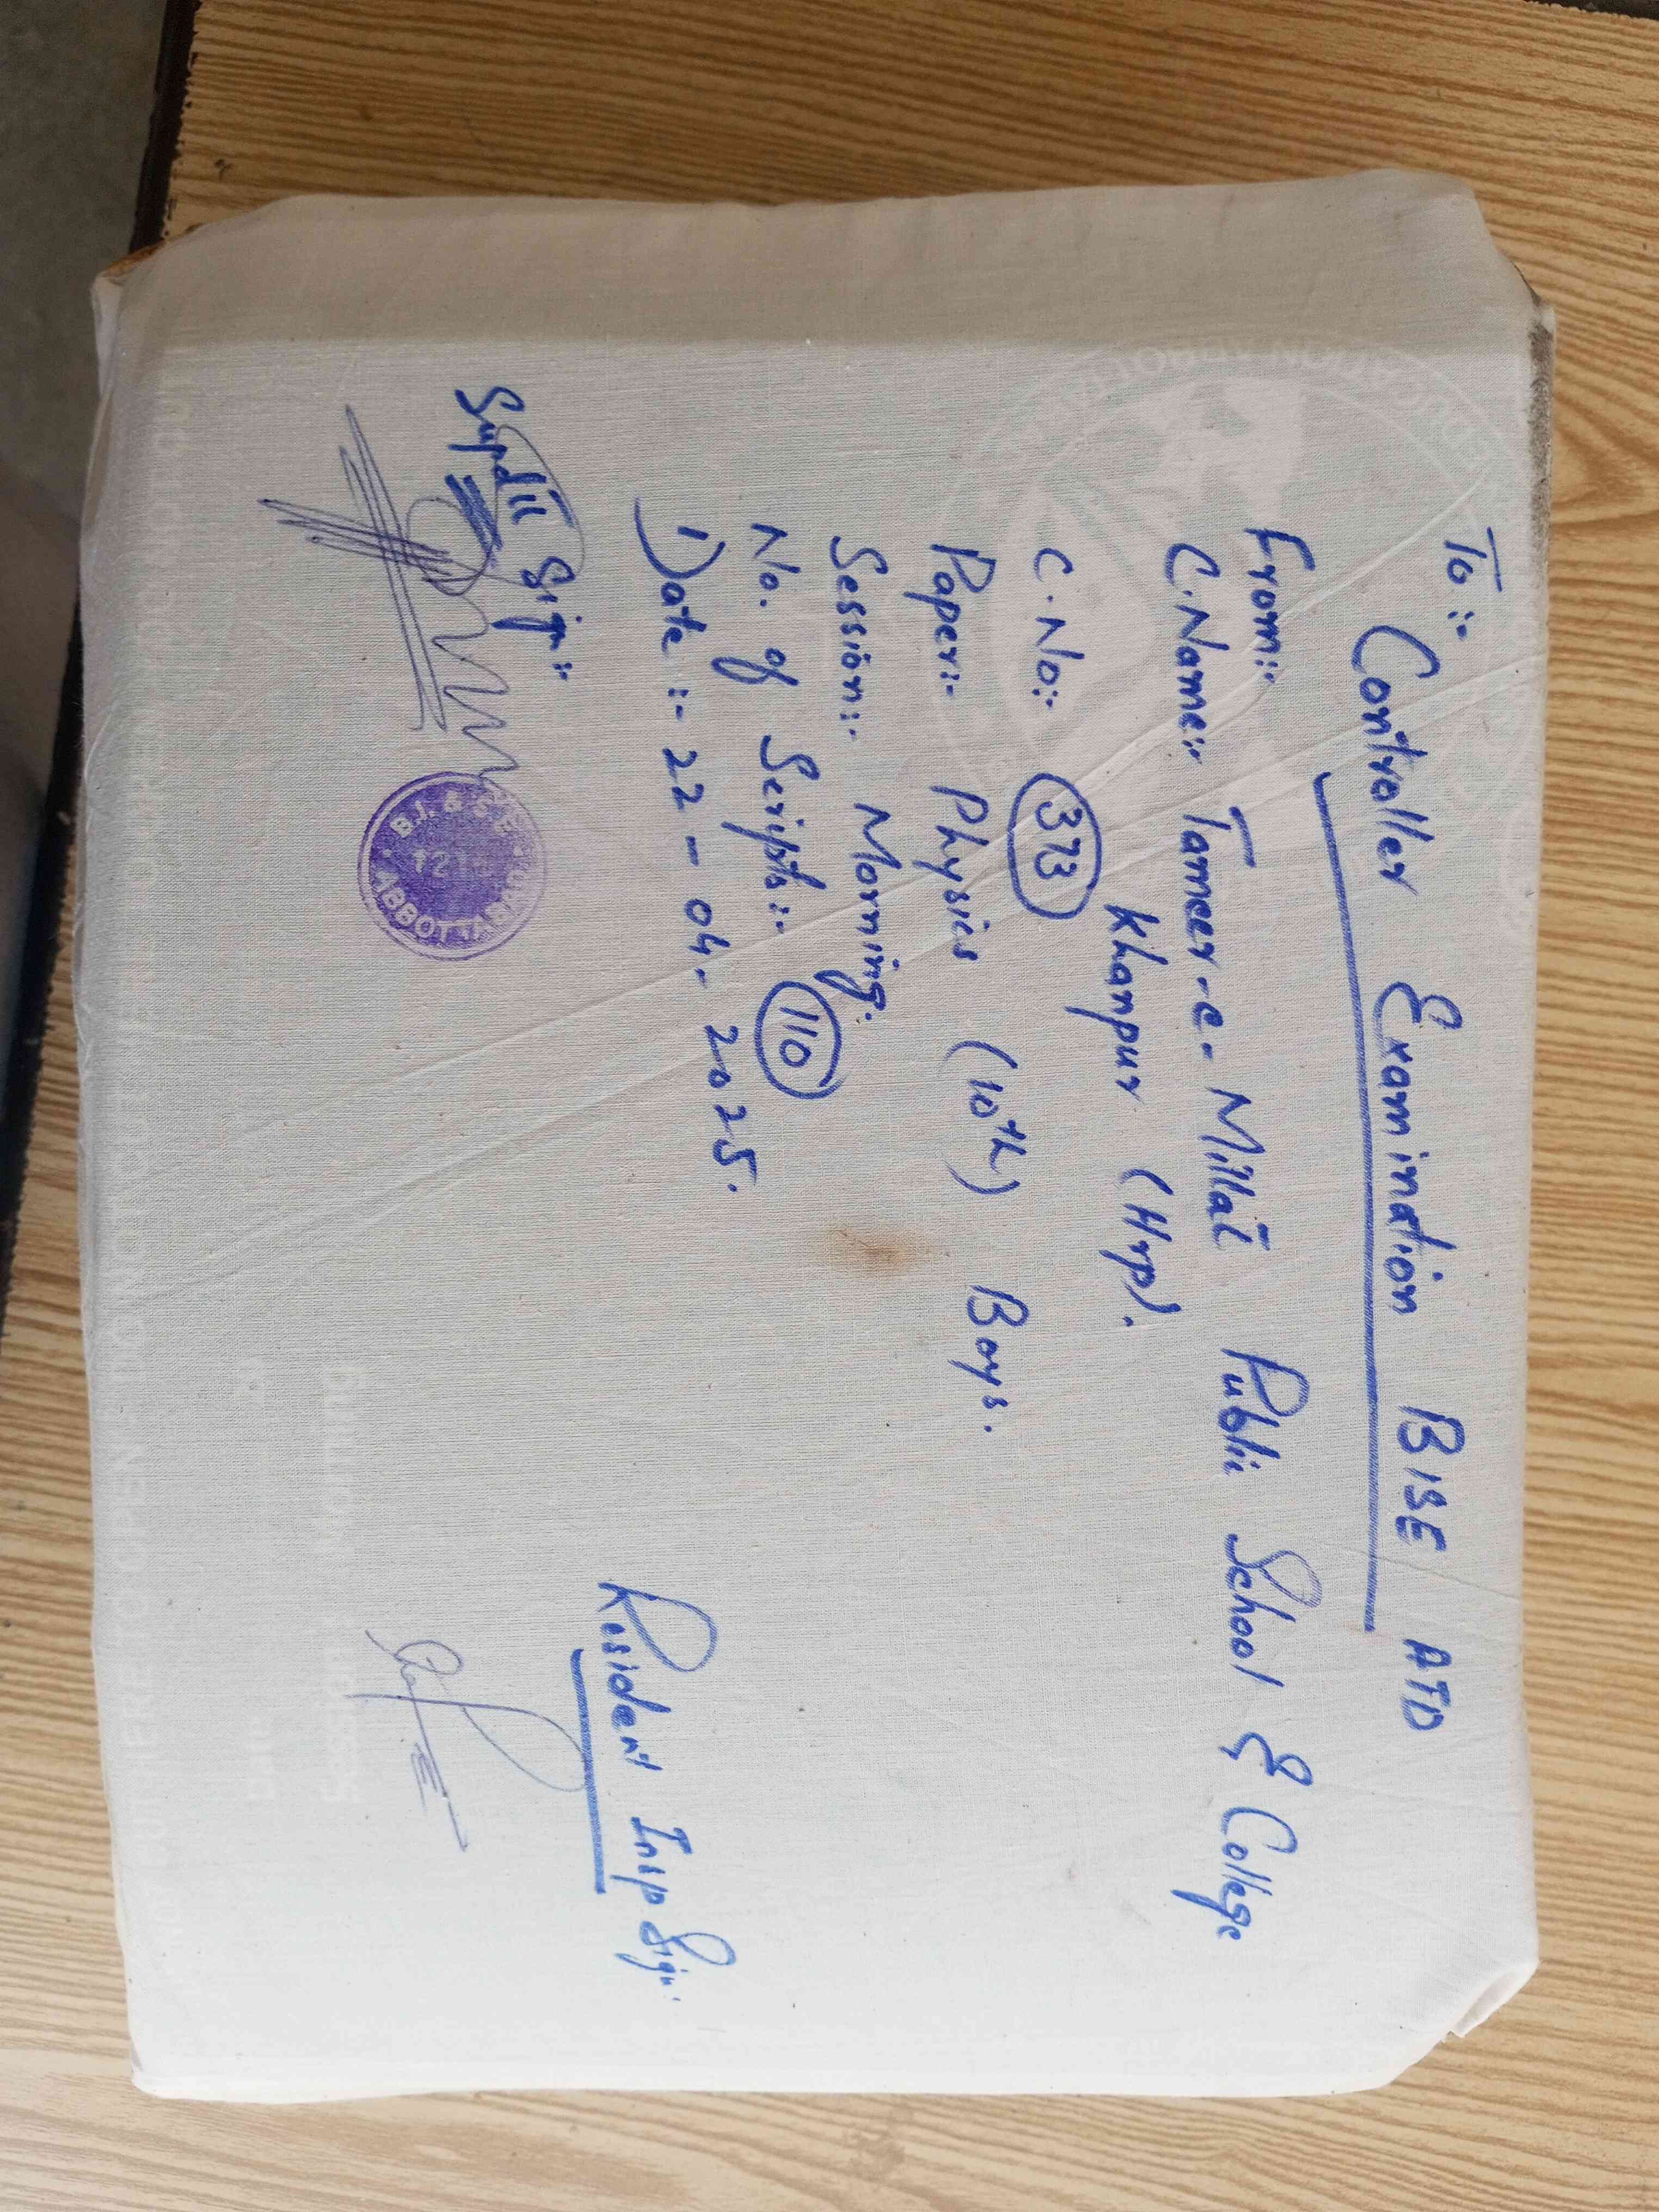 To:-
Controller Examination BISE ATD
From:-
C.Name:- Tameer-e-Millat Public School & College
Khanpur (Hrp).
C.No:- 373
Paper:- Physics (10th) Boys.
Session:- Morning.
No. of Scripts:- 110
Date:- 22-04-2025.
Supdtt Sig:-
Resident Insp Sign:-
B.I. & S.E
ABBOTTABAD